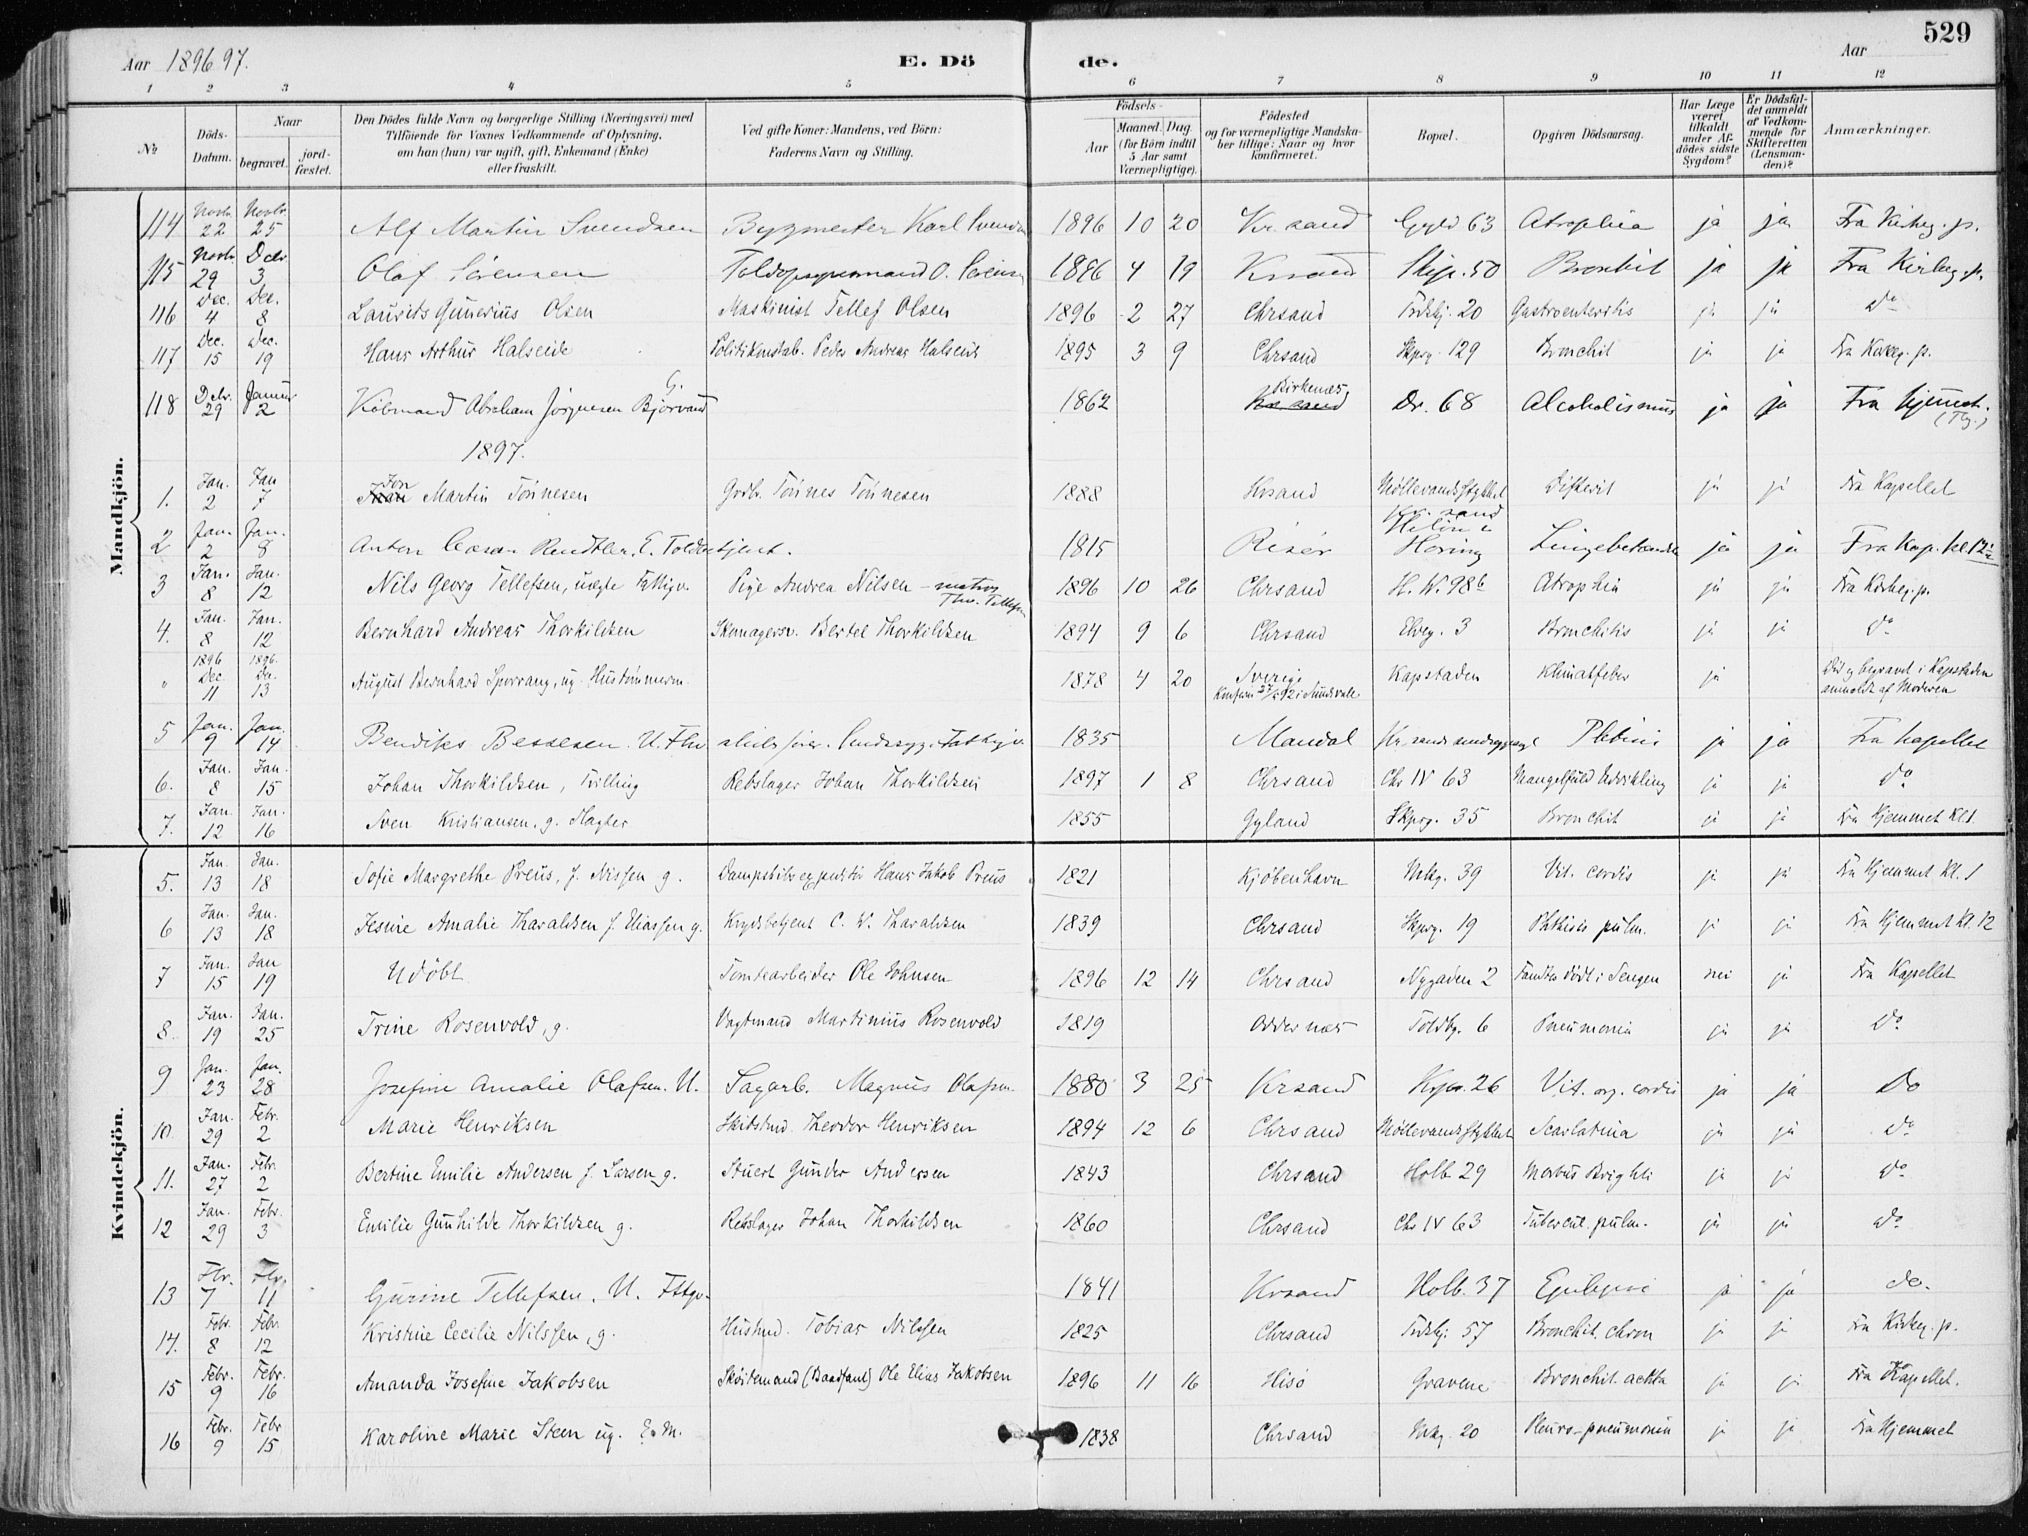 529
Aar 1896 97. E. Dö de. Aar
1 2 3 4 5 6 7 8 9 10 11 12
№ Döds-Datum. Naar begravet. jord-fæstet. Den Dödes fulde Navn og borgerlige Stilling (Næringsvei) med Tilföiende for Voxnes Vedkommende af Oplysning, om han (hun) var ugift, gift, Enkemand (Enke) eller fraskilt. Ved gifte Koner: Mandens, ved Börn: Faderens Navn og Stilling. Födsels- Aar Maaned. Dag. (for Börn indtil 5 Aar samt Værnepligtige). Födested og for værnepligtige Mandskaber tillige: Naar og hvor konfirmeret. Bopæl. Opgiven Dödsaarsag. Har Læge været tilkaldt under Afdödes sidste Sygdom? Er Dödsfaldet anmeldt af Vedkommende for Skifteretten (Lensmanden)? Anmærkninger.
Mandkjön.
114 Novbr. 22 Novbr. 25 Alf Martin Svendsen Bygmester Karl Svendsen 1896 10 20 Kr.sand 63 Atrophia ja ja Fra Kirkeg. p.
115 Novbr 29 Decbr 3 Olaf Sörensen O. Sörensen 1896 4 19 Krsand Skip. 50 Bronkit ja ja Fra Kirkeg. p.
116 Dec. 4 Dec. 8 Laurits Gunerius Olsen Maskinist Tellef Olsen 1896 2 27 Chrsand 20 Gastroenteritis ja ja do
117 Dec. 15 Dec. 19 Hans Arthur Halseide Politikonstab. Peder Andreas Halseide 1895 3 9 Chrsand Skprg. 129 Bronchit ja ja Fra Kirkeg. p.
118 Debr. 29 Januar 2 Köbmand Abraham Jörgensen Bjorvand G. 1862 Birkenæs Kr.sand Dr. 68 Alcoholismus ja ja Fra Hjemmet.
1897.
1. Jan. 2 Jan 7 Jon Martin Tönnesen Tönnes Tönnesen 1888 Krsand Möllevandsstykket Difterit ja ja Fra Kapellet
2 Jan. 2 Jan. 8 Anton 1815 Risör Kr. sand ja ja Fra Kap. kl. 12½
3 Jan. 8 Jan. 12 Nils Georg Tellefsen, uægte Fattigv. Pige Andrea Nilsen - matros Thv. Tellefsen 1896 10 26 Chrsand H. W. 98b Atrophia ja ja Fra Kirkeg. p.
4. Jan. 8 Jan. 12 Bernhard Andreas Thorkildsen Skomagersv. Bertel Thorkildsen 1894 9 6 Chrsand Elveg. 3 Bronchitis ja ja do
" 1896 Dec 11 1896. De. 13 August Bernhard Sporrang, ug. Hustömmerm. 1878 4 20 Sverige Kapstaden Klimatfeber ja Död og begravet i Kapstaden anmeldt af Moderen
5 Jan. 9 Jan. 14 Bendiks Bessesen. U. 1835 Mandal ja ja Fra Kapellet
6. Jan. 8 Jan. 15 Johan Thorkildsen, Tvilling Rebslager Johan Thorkildsen 1897 1 8 Chrsand Chr IV 63 Mangelfuld Udvikling ja ja do
7. Jan. 12 Jan. 16 Sven Kristiansen, g. Slagter 1855 Gyland Skprg. 35 Bronchit ja ja Fra Hjemmet Kl 1
Kvindekjön.
5. Jan. 13 Jan. 18 Sofie Margrethe Preus, f. Nissen g. Dampskibsexpeditör Hans Jakob Preus 1821 Kjöbenhavn Mkg. 39 Vit. cordis ja ja Fra Hjemmet Kl. 1
6 Jan. 13 Jan. 18 Jesine Amalie Tharaldsen f. Eliassen g. Krydsbetjent C. W. Tharaldsen 1839 Chrsand Skprg. 19 Phthisis pulm. ja ja Fra Hjemmet Kl. 12
7 Jan. 15 Jan 19 Udöbt Tomtearbeider Ole Johnsen 1896 12 14 Chrsand Nygaden 2 Fandtes död i Sengen nei ja Fra Kapellet
8. Jan. 19 Jan. 25 Trine Rosenvold, g. Vagtmand Martinius Rosenvold 1819 Oddernæs Toldbg. 6 Pneumonia ja ja do
9 Jan. 23 Jan. 28 Josefine Amalie Olafsen. U. Sagarb. Magnus Olafsen 1880 3 25 Krsand 26 Vit. org. cordis ja ja Do
10 Jan. 29 Febr. 2 Marie Henriksen Theodor Henriksen 1894 12 6 Chrsand Möllevandsstykket Scarlatina ja ja do
11. Jan. 27 Febr. 2 Bertine Emilie Andersen f. Larsen g. Stuert Gunder Andersen 1843 Chrsand Holb. 29 Morbus Brighti ja ja do
12 Jan. 29 Febr. 3 Emilie Gunhilde Thorkildsen g. Rebslager Johan Thorkildsen 1860 Chrsand Chr IV 63 Tubercul. pulm. ja ja do
13 Fbr. 7 Fbr. 11 Gurine Tellefsen. U. 1841 Krsand Holb. 37 Epilepsi ja ja do.
14. Febr. 8 Febr. 12 Kristine Cecilie Nilssen, g. Tobias Nilssen 1825 Chrsand 57 Bronchit. chron ja ja Fra Kirkeg. p.
15 Febr. 9 Febr. 16 Amanda Josefine Jakobsen Sköitemand (Baadfant) Ole Elias Jakobsen 1896 11 16 Hisö Gravene Bronchit. acuta ja ja Fra Kapellet.
16 Febr. 9 Febr 15 Karoline Marie Steen ug. 1838 Chrsand Mkg. 20 Pleuro-pneumonia ja ja Fra Hjemmet